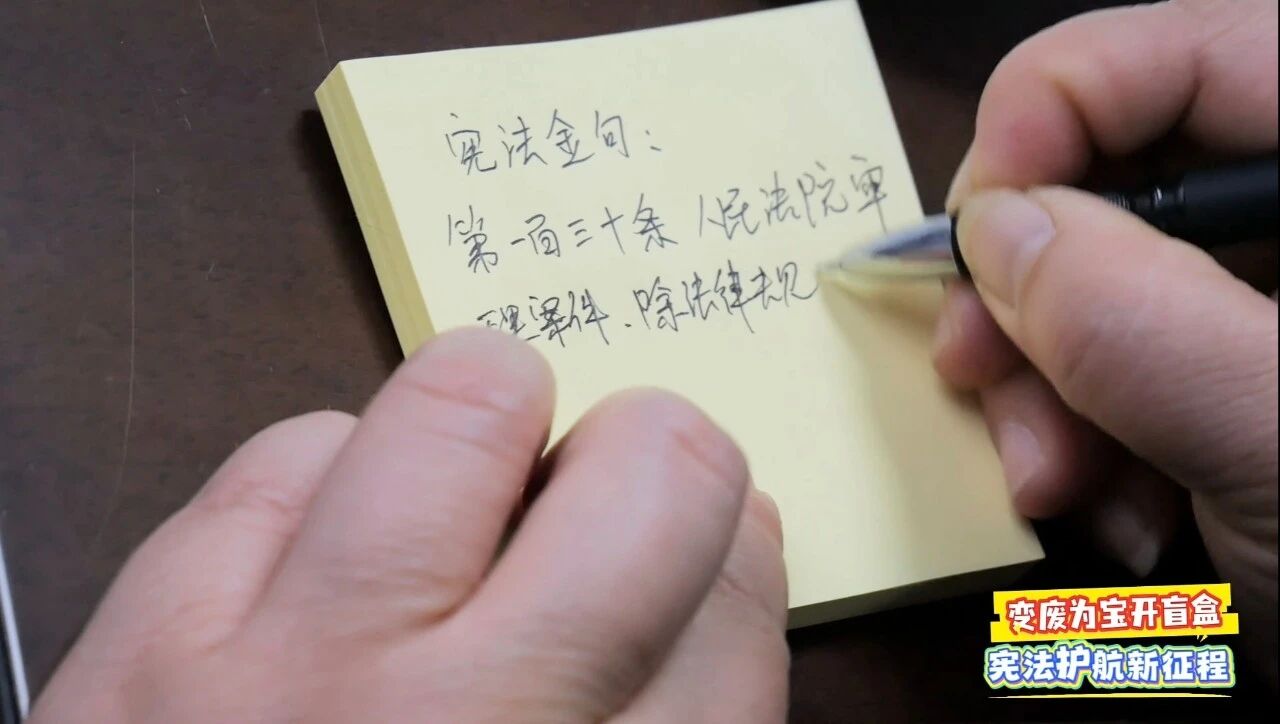 宪法金句：
第一百三十条 人民法院审
理案件、除法律规
变废为宝开盲盒
宪法护航新征程